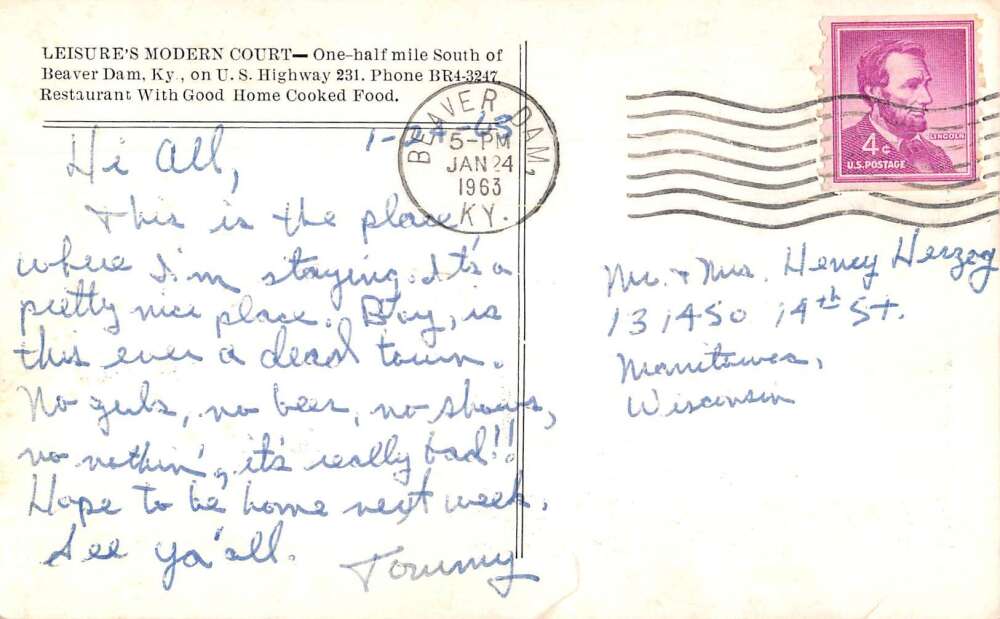 LEISURE'S MODERN COURT— One-half mile South of
Beaver Dam, Ky., on U. S. Highway 231. Phone BR4-3247
Restaurant With Good Home Cooked Food.
1-24-63
Hi All,
This is the place
where I'm staying. It's a
pretty nice place. Boy, is
this ever a dead town.
No gurls, no beer, no shows,
no nothin', it's really bad!!
Hope to be home next week.
See ya'all.
Tommy
BEAVER DAM,
5-PM
JAN 24
1963
KY.
LINCOLN
4¢
U.S. POSTAGE
Mr. + Mrs. Henry Herzog
131450 14th St.
Manitowoc,
Wisconsin